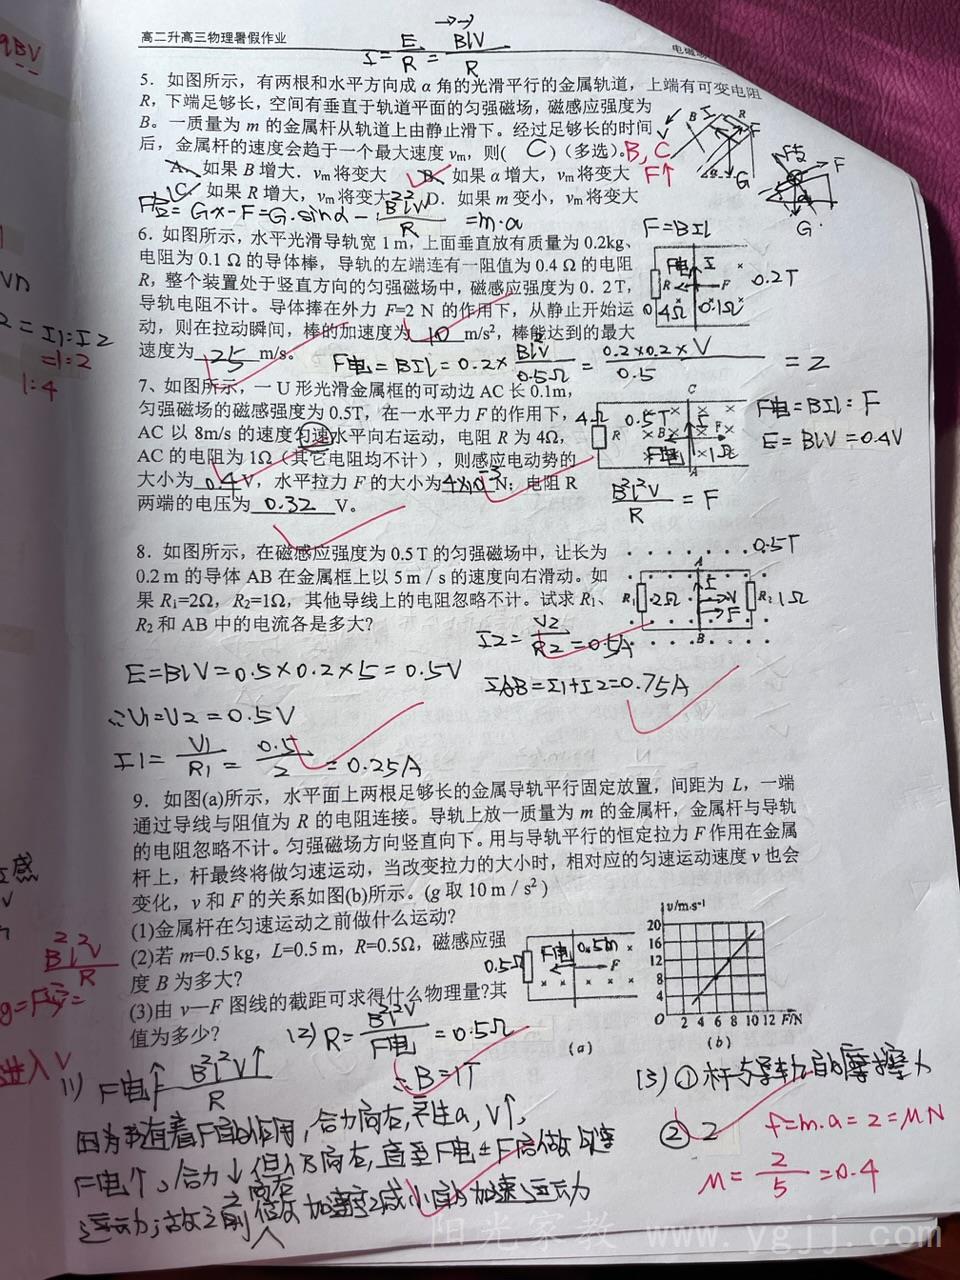 高二升高三物理暑假作业
I=E/R=BlV/R
5．如图所示，有两根和水平方向成 α 角的光滑平行的金属轨道，上端有可变电阻
R，下端足够长，空间有垂直于轨道平面的匀强磁场，磁感应强度为
B。一质量为 m 的金属杆从轨道上由静止滑下。经过足够长的时间
后，金属杆的速度会趋于一个最大速度 vm，则( C )(多选)。B,C
A．如果 B 增大．vm 将变大 B．如果 α 增大，vm 将变大 F↑
C．如果 R 增大，vm 将变大 D．如果 m 变小，vm 将变大
=Gx-F=G·sinα-B²l²V/R=m·a
6．如图所示，水平光滑导轨宽 1 m，上面垂直放有质量为 0.2kg、 F=BIl
电阻为 0.1 Ω 的导体棒，导轨的左端连有一阻值为 0.4 Ω 的电阻
R，整个装置处于竖直方向的匀强磁场中，磁感应强度为 0. 2T，
导轨电阻不计。导体捧在外力 F=2 N 的作用下，从静止开始运
动，则在拉动瞬间，棒的加速度为 10 m/s²，棒能达到的最大
速度为 25 m/s。
F电 R I F 0.2T 0.4Ω 0.1Ω
F电=BIl=0.2×BlV/0.5Ω=0.2×0.2×V/0.5=2
7、如图所示，一 U 形光滑金属框的可动边 AC 长 0.1m，
匀强磁场的磁感强度为 0.5T，在一水平力 F 的作用下，
AC 以 8m/s 的速度匀速水平向右运动，电阻 R 为 4Ω，
AC 的电阻为 1Ω（其它电阻均不计），则感应电动势的
大小为 0.4 V，水平拉力 F 的大小为 4×10⁻³ N；电阻 R
两端的电压为 0.32 V。
4Ω R 0.5T B C I F F电 1Ω A
F电=BIl=F
E=BlV=0.4V
B²l²V/R=F
8．如图所示，在磁感应强度为 0.5 T 的匀强磁场中，让长为
0.2 m 的导体 AB 在金属框上以 5 m / s 的速度向右滑动。如
果 R1=2Ω，R2=1Ω，其他导线上的电阻忽略不计。试求 R1、
R2 和 AB 中的电流各是多大?
0.5T A R1 2Ω I V F R2 1Ω B
I2=V2/R2=0.5A
E=BlV=0.5×0.2×5=0.5V
IAB=I1+I2=0.75A
∴V1=V2=0.5V
I1=V1/R1=0.5/2=0.25A
9．如图(a)所示，水平面上两根足够长的金属导轨平行固定放置，间距为 L，一端
通过导线与阻值为 R 的电阻连接。导轨上放一质量为 m 的金属杆，金属杆与导轨
的电阻忽略不计。匀强磁场方向竖直向下。用与导轨平行的恒定拉力 F 作用在金属
杆上，杆最终将做匀速运动，当改变拉力的大小时，相对应的匀速运动速度 v 也会
变化，v 和 F 的关系如图(b)所示。(g 取 10 m / s²)
(1)金属杆在匀速运动之前做什么运动?
(2)若 m=0.5 kg，L=0.5 m，R=0.5Ω，磁感应强
度 B 为多大?
(3)由 v—F 图线的截距可求得什么物理量?其
值为多少?
0.5Ω F电 0.5m F
(a)
υ/m·s⁻¹
20
16
12
8
4
O 2 4 6 8 10 12 F/N
(b)
(2) R=B²l²V/F电=0.5Ω
∴B=1T
(1) F电↑ B²l²V↑/R
(3) ①杆与导轨间的摩擦力
② 2
f=m·a=2=μN
μ=2/5=0.4
合力向右,产生a,V↑,
F电↑,合力↓
I1:I2
=1:2
1:4
B²l²V/R
进入V
阳光家教 www.ygjj.com